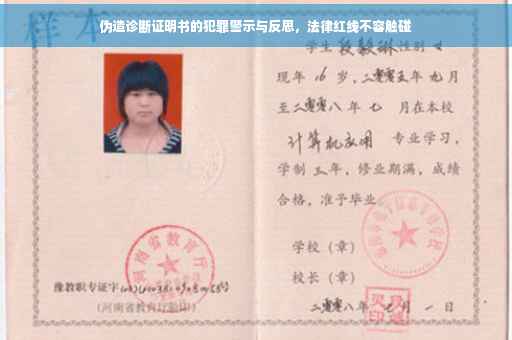 伪造诊断证明书的犯罪警示与反思，法律红线不容触碰
样本
学生段毅琳性别女
现年 16 岁，二零零五年九月
至二零零八年七 月在本校
计算机应用 专业学习，
学制三年，修业期满，成绩
合格，准予毕业
学校（章）
校长（章）
二零零八年七月一日
河南省教育厅
豫教职专证字
（河南省教育厅验印）